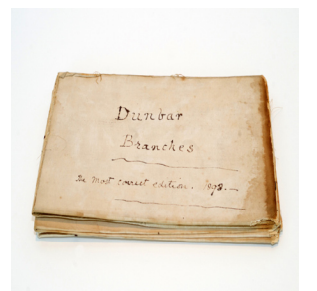 Dunbar
Branches
The most correct edition. 1898.